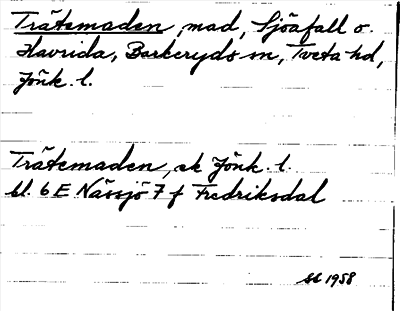 Trätemaden, mad, Sjöafall o.
Havrida, Barkeryds sn, Tveta hd,
Jönk. l.
Trätemaden, ek Jönk. l.
bl. 6 E Nässjö 7 f Fredriksdal
1958